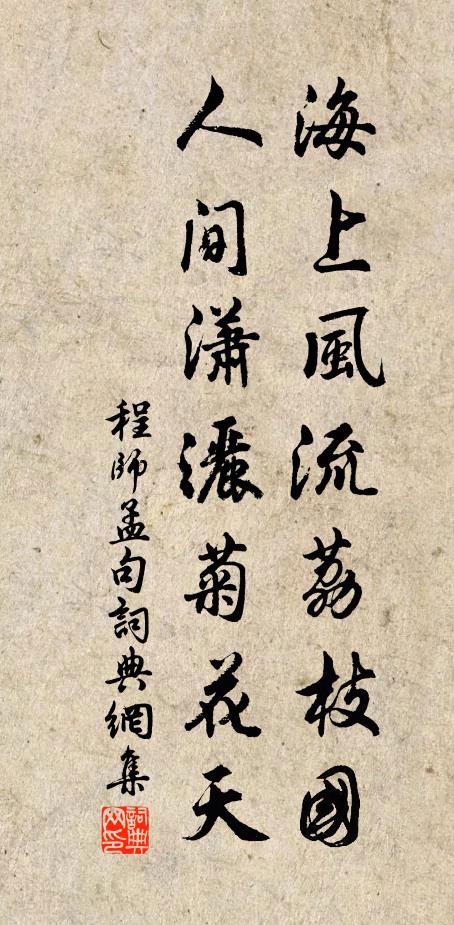 海上風流荔枝國
人間瀟灑菊花天
程師孟句詞典網集
詞典網印